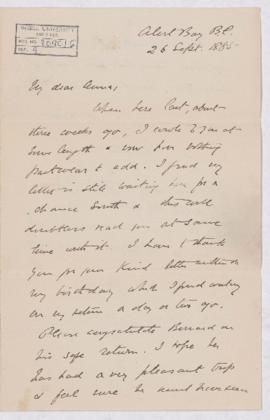 McGILL UNIVERSITY
ACC. NO.
REF.
Alert Bay B.C.
26 Sept. 1885
My dear Anna,
When here last, about
three weeks ago, I wrote to you at
some length & now have nothing
particular to add. I find my
letter is still waiting here for a
chance South & this will
doubtless reach you at same
time with it. I have to thank
you for your kind letter written on
my birthday which I found waiting
on my return a day or two ago.
Please congratulate Bernard on
his safe return. I hope he
has had a very pleasant trip
& feel sure he must have been